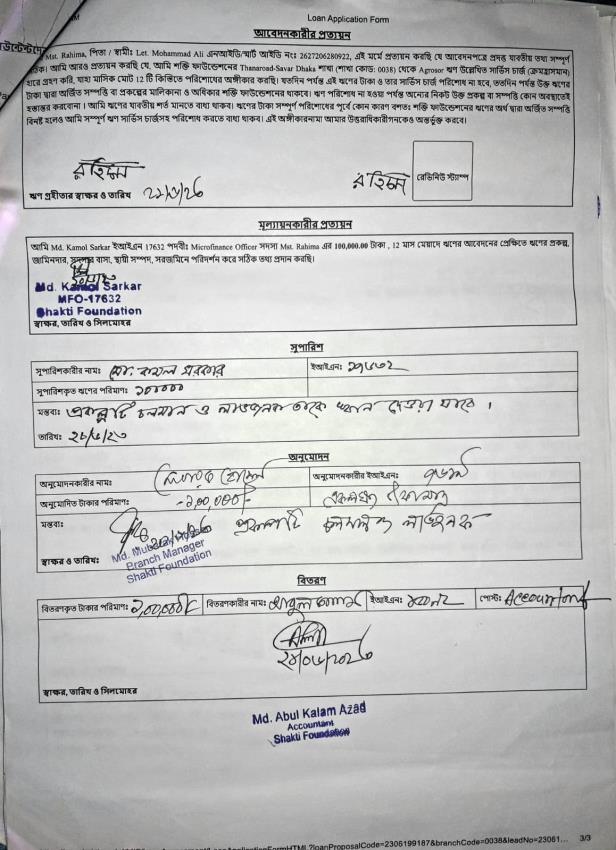 Loan Application Form
আবেদনকারীর প্রত্যয়ন
Mst. Rahima, পিতা / স্বামীঃ Let. Mohammad Ali এনআইডি/স্মার্ট আইডি নংঃ 2627206280922, এই মর্মে প্রত্যয়ন করছি যে আবেদনপত্রে প্রদত্ত যাবতীয় তথ্য সম্পূর্ণ
আমি আরও প্রত্যয়ন করছি যে, আমি শক্তি ফাউন্ডেশনের Thanaroad-Savar Dhaka শাখা (শাখা কোড: 0038) থেকে Agrosor ঋণ উল্লেখিত সার্ভিস চার্জ (ক্রমহ্রাসমান)
হারে গ্রহণ করি, যাহা মাসিক মোট 12 টি কিস্তিতে পরিশোধের অঙ্গীকার করছি। যতদিন পর্যন্ত এই ঋণের টাকা ও তার সার্ভিস চার্জ পরিশোধ না হবে, ততদিন পর্যন্ত উক্ত ঋণের
টাকা দ্বারা অর্জিত সম্পত্তি বা প্রকল্পের মালিকানা ও অধিকার শক্তি ফাউন্ডেশনের থাকবে। ঋণ পরিশোধ না হওয়া পর্যন্ত অন্যের নিকট উক্ত প্রকল্প বা সম্পত্তি কোন অবস্থাতেই
হস্তান্তর করবোনা। আমি ঋণের যাবতীয় শর্ত মানতে বাধ্য থাকব। ঋণের টাকা সম্পূর্ণ পরিশোধের পূর্বে কোন কারণ বশতঃ শক্তি ফাউন্ডেশনের ঋণের অর্থ দ্বারা অর্জিত সম্পত্তি
বিনষ্ট হলেও আমি সম্পূর্ণ ঋণ সার্ভিস চার্জসহ পরিশোধ করতে বাধ্য থাকব। এই অঙ্গীকারনামা আমার উত্তরাধিকারীগনকেও অন্তর্ভুক্ত করবে।
রহিমা
রহিমা
রেভিনিউ স্ট্যাম্প
ঋণ গ্রহীতার স্বাক্ষর ও তারিখ
মূল্যায়নকারীর প্রত্যয়ন
আমি Md. Kamol Sarkar ইআইএন 17632 পদবীঃ Microfinance Officer সদস্য Mst. Rahima এর 100,000.00 টাকা , 12 মাস মেয়াদে ঋণের আবেদনের প্রেক্ষিতে ঋণের প্রকল্প,
জামিনদার, সদস্যের বাসা, স্থায়ী সম্পদ, সরজমিনে পরিদর্শন করে সঠিক তথ্য প্রদান করছি।
Md. Kamol Sarkar
MFO-17632
Shakti Foundation
স্বাক্ষর, তারিখ ও সিলমোহর
সুপারিশ
সুপারিশকারীর নামঃ মোঃ কমল সরকার ইআইএনঃ ১৭৬৩২
সুপারিশকৃত ঋণের পরিমাণঃ ১০০০০০
মন্তব্যঃ প্রকল্পটি চলমান ও লাভজনক তাকে ঋন দেওয়া যাবে।
তারিখঃ
অনুমোদন
অনুমোদনকারীর নামঃ অনুমোদনকারীর ইআইএনঃ
অনুমোদিত টাকার পরিমাণঃ -১,০০,০০০/-
মন্তব্যঃ প্রকল্পটি চলমান ও লাভজনক
স্বাক্ষর ও তারিখঃ
Branch Manager
Shakti Foundation
বিতরণ
বিতরণকৃত টাকার পরিমাণঃ ১,০০,০০০/- বিতরণকারীর নামঃ আবুল কালাম ইআইএনঃ পোস্টঃ Accountant
স্বাক্ষর, তারিখ ও সিলমোহর
Md. Abul Kalam Azad
Accountant
Shakti Foundation
3/3
loanProposalCode=2306199187&branchCode=0038&leadNo=23061...